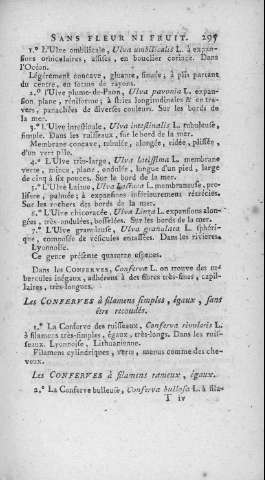 SANS FLEUR NI FRUIT. 295
1.° L'Ulve ombilicale, Ulva umbilicalis L. à expan-
sions orbiculaires, assises, en bouclier coriace. Dans
l'Océan.
Légérement concave, gluante, sinuée, à plis partant
du centre, en forme de rayons.
2.° l'Ulve plume-de-Paon, Ulva pavonia L. expan-
sion, plane, réniforme; à stries longitudinales & en tra-
vers, panachées de diverses couleurs. Sur les bords de
la mer.
3.° L'Ulve intestinale, Ulva intestinalis L. tubuleuse,
simple. Dans les ruisseaux, sur le bord de la mer.
Membrane concave, tubulée, alongée, ridée, plissée,
d'un vert pâle.
4.° L'Ulve très-large, Ulva latissima L. membrane
verte, mince, plane, ondulée, longue d'un pied, large
de cinq à six pouces. Sur le bord de la mer.
5.° L'Ulve Laitue, Ulva Lactuca L. membraneuse, pro-
lifere, palmée; à expansions inférieurement rétrécies.
Sur les rochers des bords de la mer.
6.° L'Ulve chicoracée, Ulva Linza L. expansions alon-
gées, ondulées, bosselées. Sur les bords de la mer.
7.° L'Ulve granuleuse, Ulva granulata L. sphéri-
que, composée de vésicules entassées. Dans les rivieres.
Lyonnoise.
Ce genre présente quatorze especes.
Dans les CONFERVES, Conferva L. on trouve des tu-
bercules inégaux, adhérens à des fibres très-fines, capil-
laires, très-longues.
Les CONFERVES à filamens simples, égaux, sans
être recoudés.
1.° La Conferve des ruisseaux, Conferva rivularis L.
à filamens très-simples, égaux, très-longs. Dans les ruis-
seaux. Lyonnoise, Lithuanienne.
Filamens cylindriques, verts, menus comme des che-
veux.
Les CONFERVES à filamens rameux, égaux.
2.° La Conferve bulleuse, Conferva bullosa L. à fila-
T iv